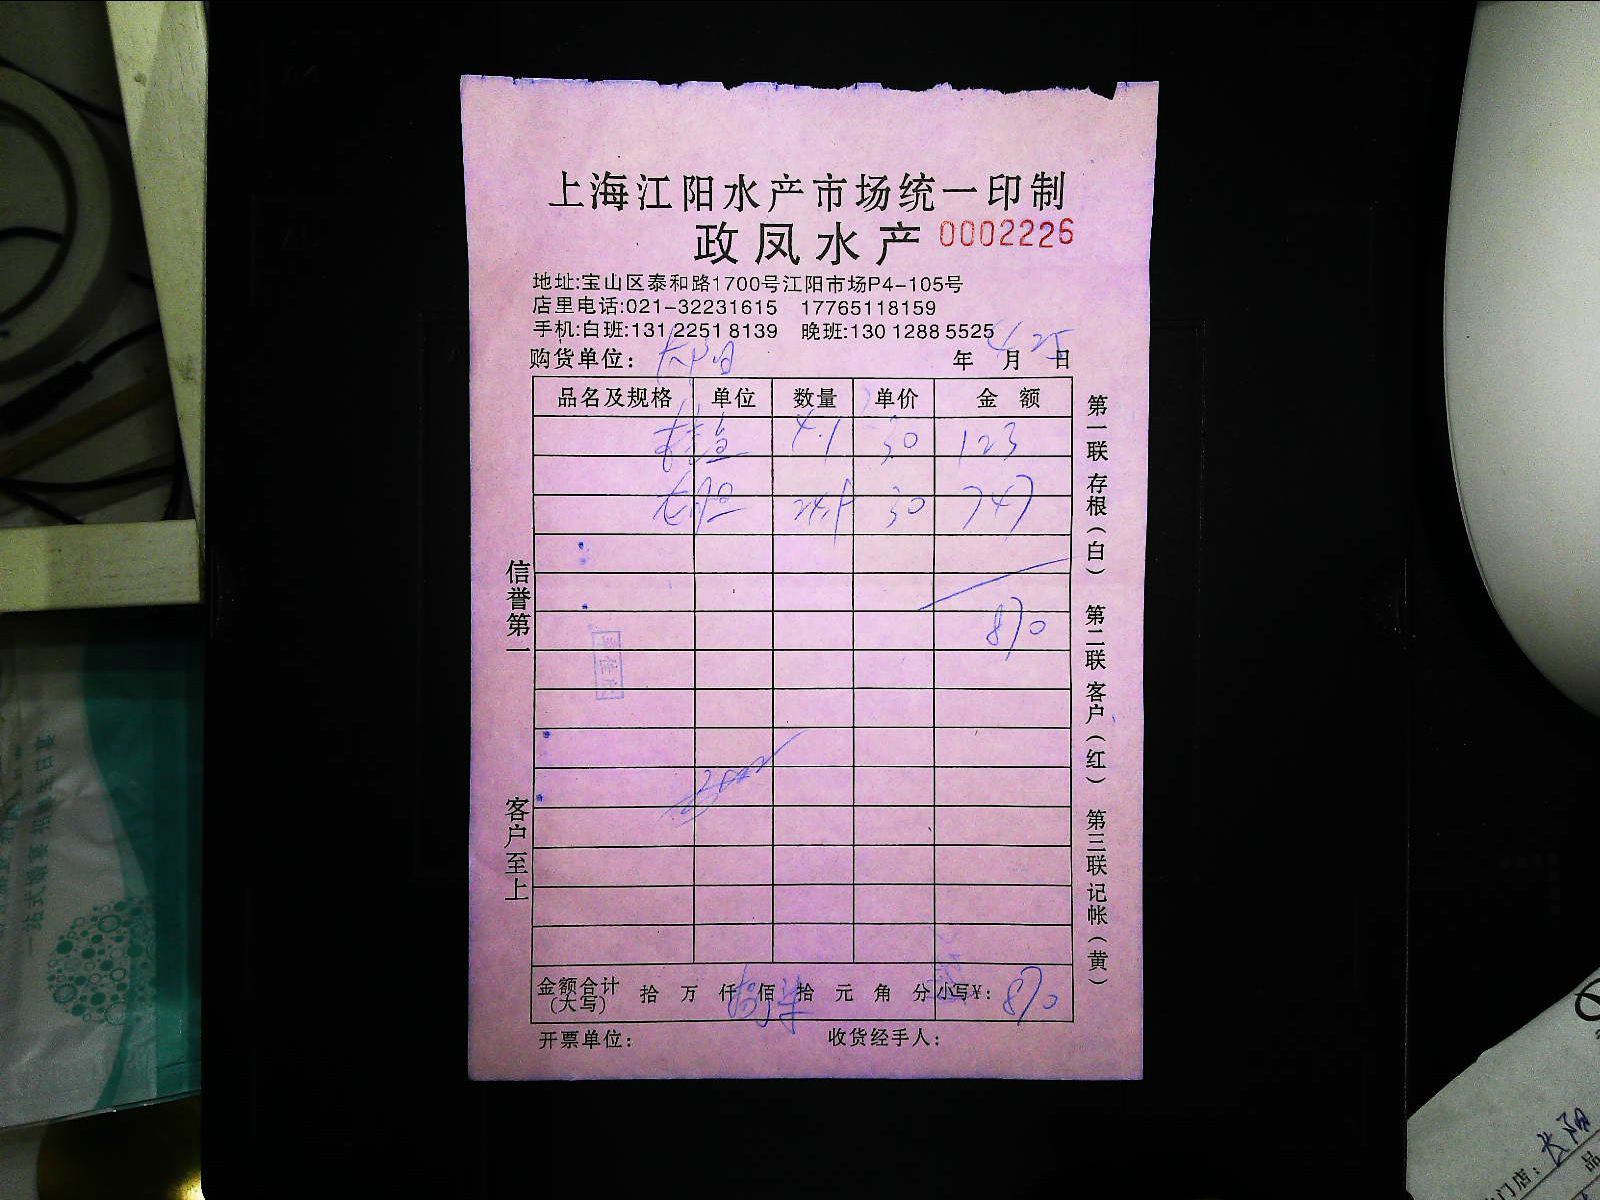 上海江阳水产市场统一印制
政凤水产 0002226
地址:宝山区泰和路1700号江阳市场P4-105号
店里电话:021-32231615 17765118159
手机:白班:131 2251 8139 晚班:130 1288 5525
购货单位: 长阳 年 4 月 25 日
品名及规格 单位 数量 单价 金 额
4.1 30 123
24.9 30 747
870
信誉第一
客户至上
第一联 存根(白) 第二联 客户(红) 第三联 记帐(黄)
金额合计(大写) 拾 万 仟 佰 拾 元 角 分 小写¥: 870
开票单位: 收货经手人:
一站式
门店: 长阳
品